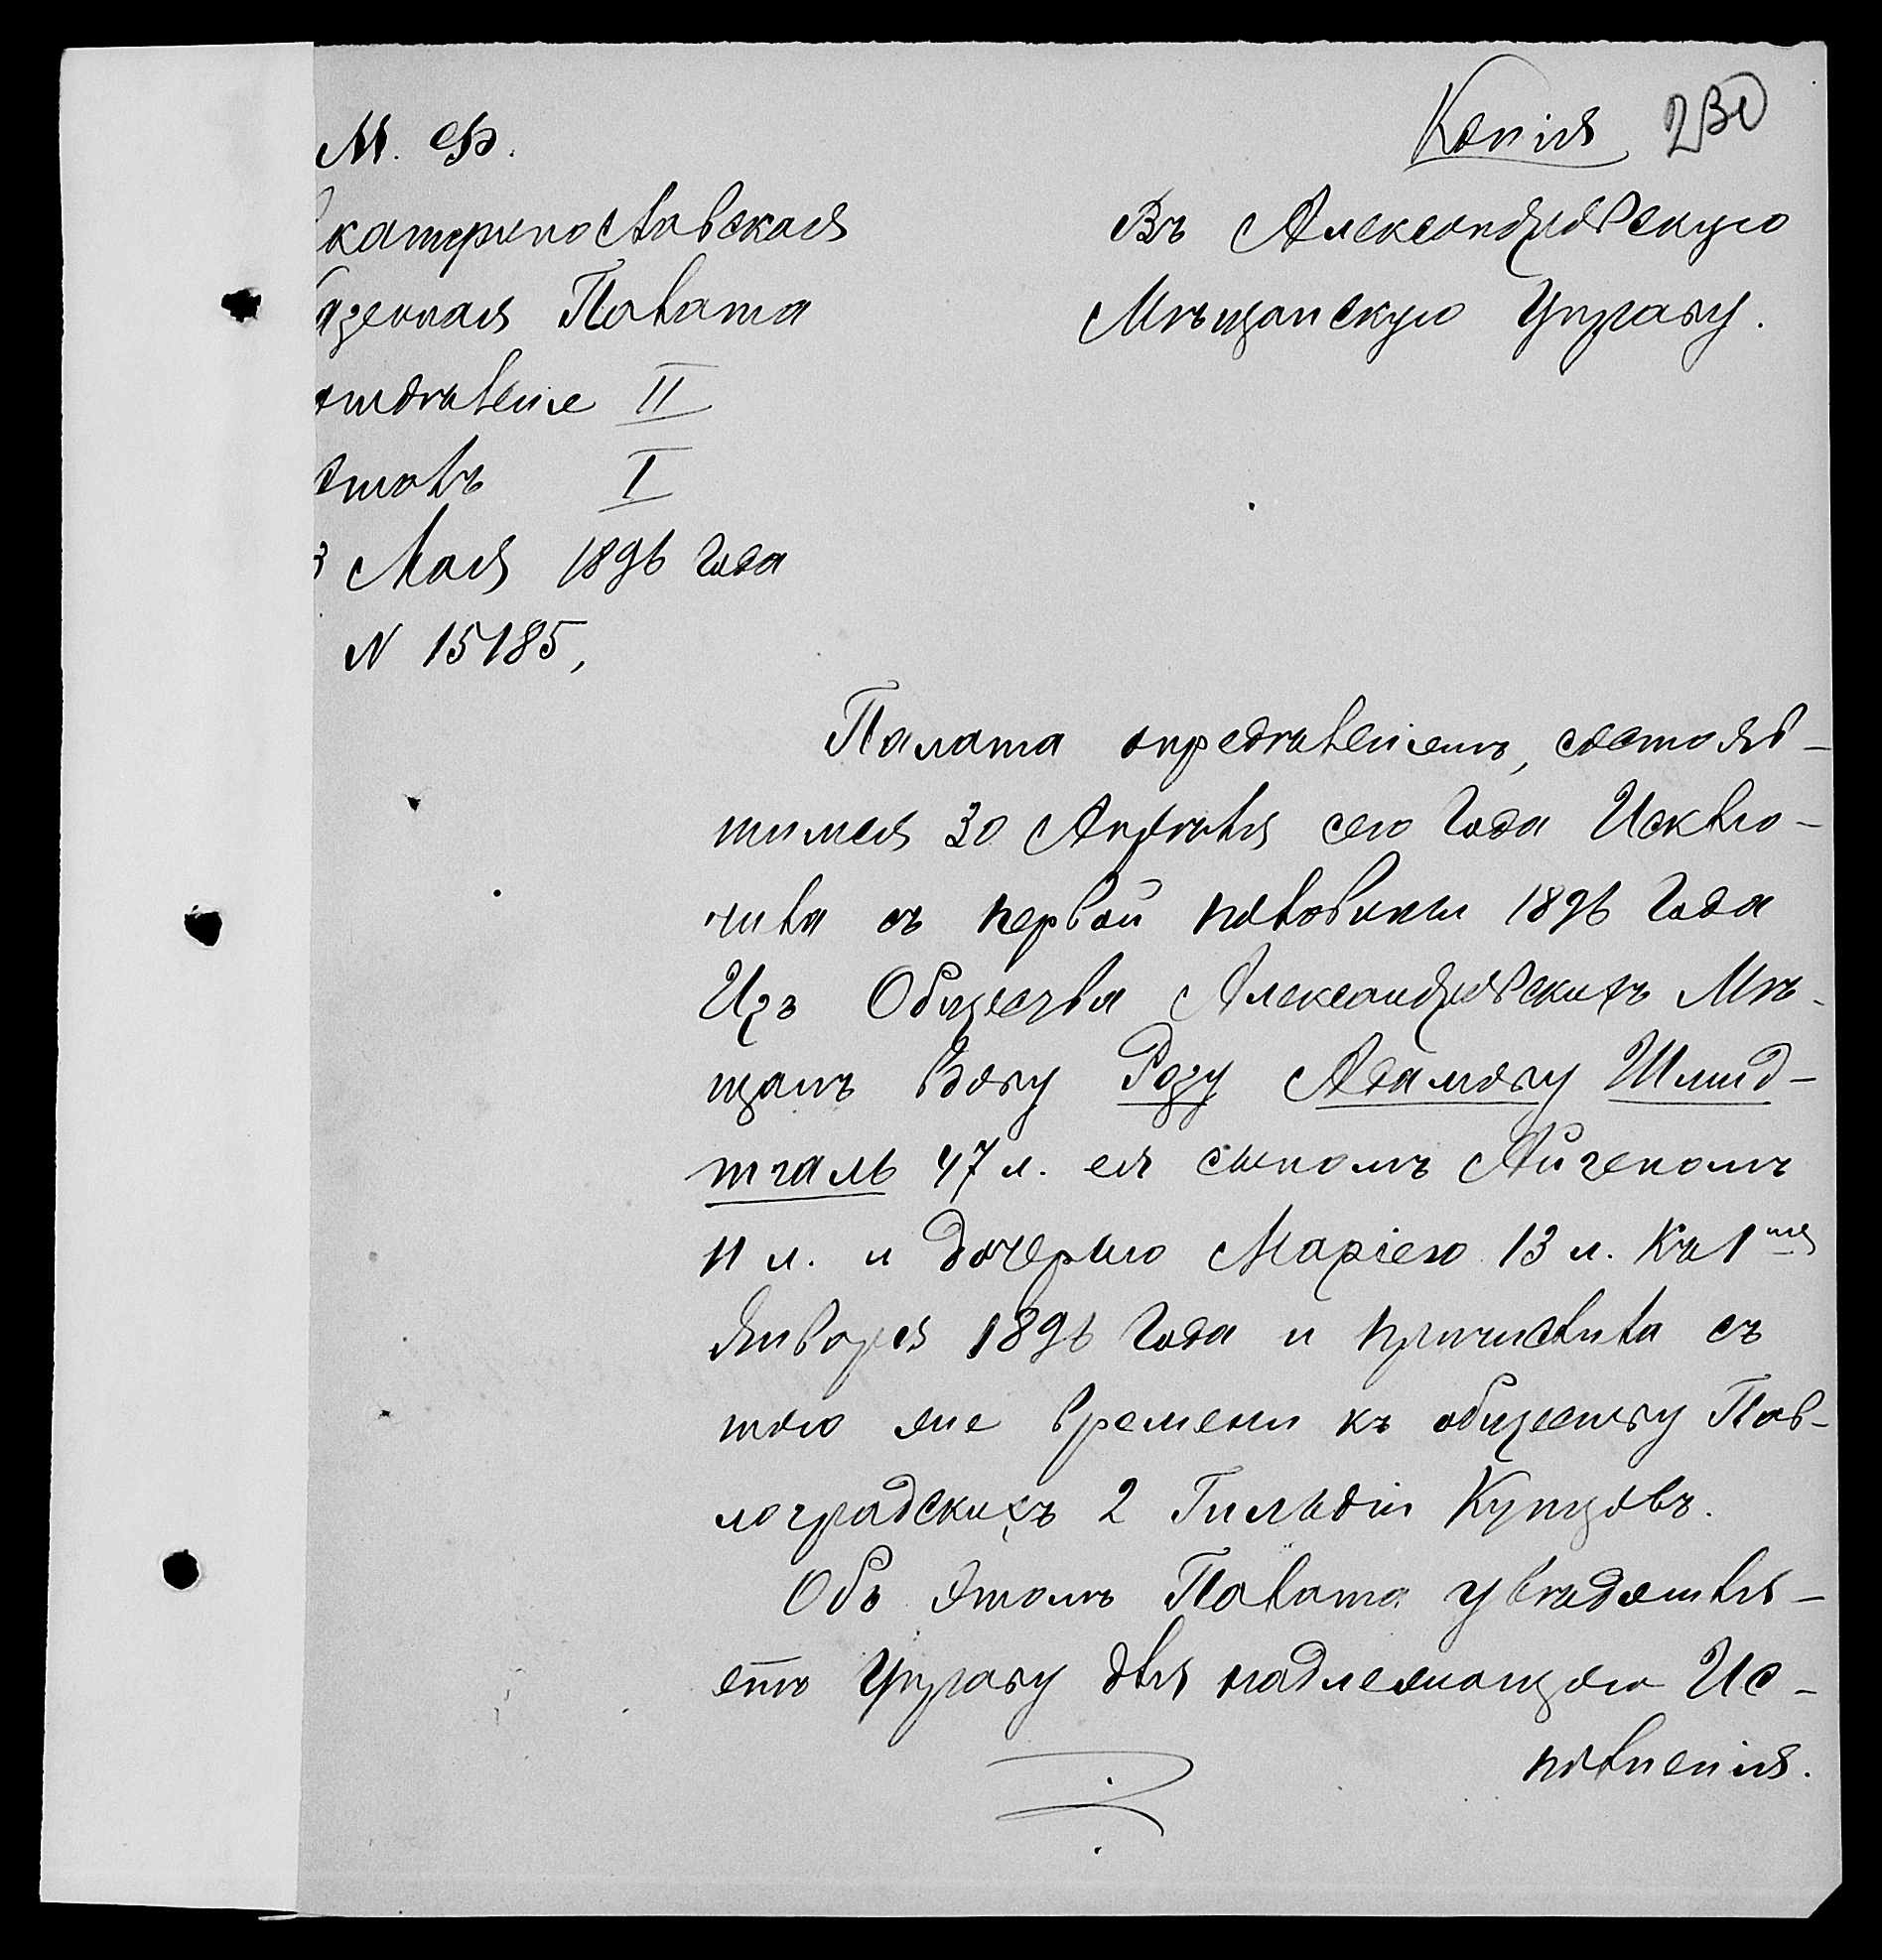 М. Ф.
Копія 230
катеринославская
азенная Палата
Въ Александровскую
Мѣщанскую Управу.
отдѣленіе II
столъ I
Мая 1896 года
N 15185,
Палата опредѣленіемъ, состояв-
шимся 30 Апрѣля сего года Исклю-
чила съ первой половины 1896 года
Изъ Общества Александровскихъ Мѣ-
щанъ Вдову Розу Адамову Шмид-
тгаль 47 л. ея сыномъ
11 л. и дочерью Маріею 13 л. къ 1
Января 1896 года и причислила съ
того же времени къ обществу Пав-
лоградскихъ 2 Гильдіи Купцовъ.
Объ этомъ Палата увѣдомля-
етъ Управу для надлежащаго Ис-
полненія.